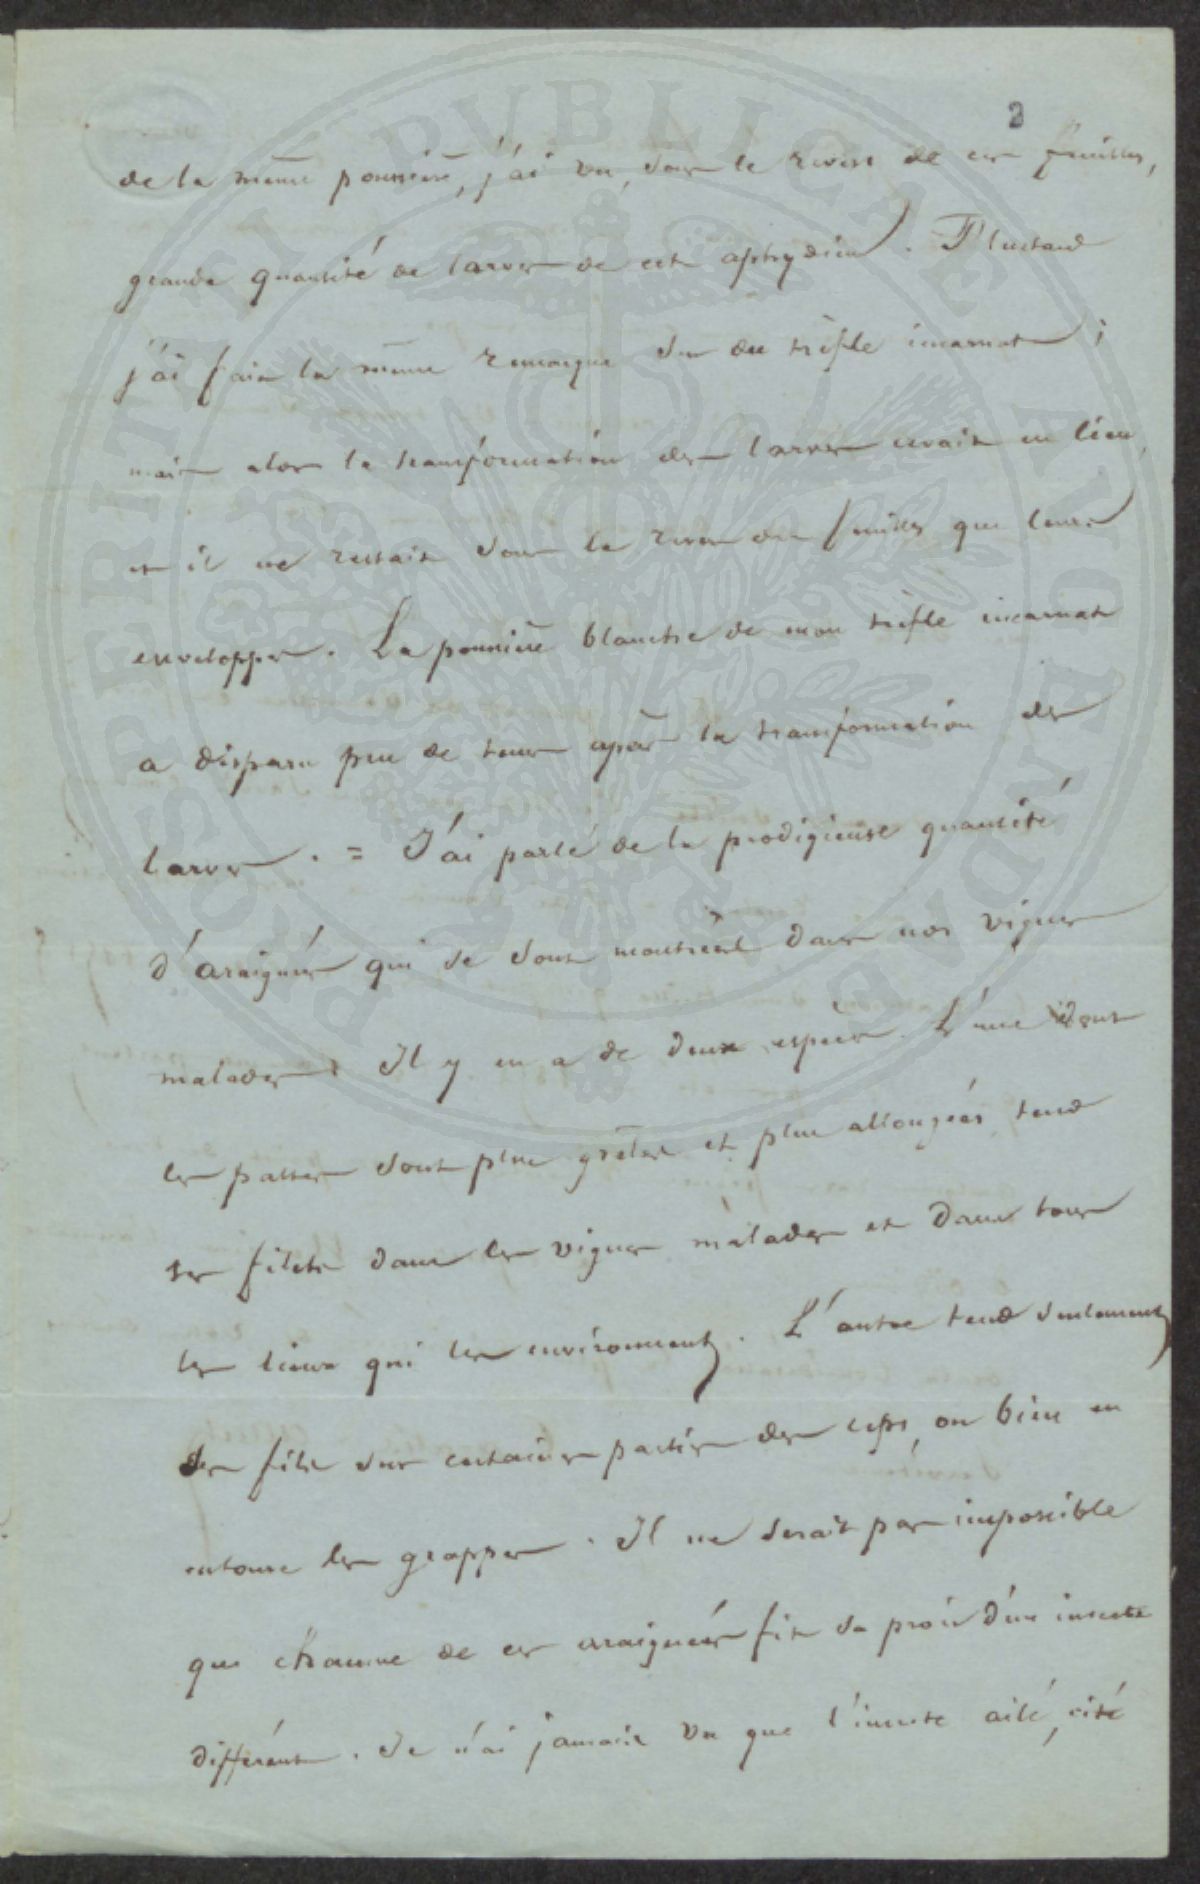 2
de la même poussière, j'ai vu, sous le revers de ces feuilles,
grande quantité de larves de cet aphydien). Plustard
j'ai fait la même remarque sur du trèfle incarnat ;
mais alors la transformation des larves avait eu lieu,
et il ne restait sous le revers des feuilles que leurs
enveloppes. La poussière blanche de mon trèfle incarnat
a disparu peu de tems après la transformation des
larves. = J'ai parlé de la prodigieuse quantité
d'araignées qui se sont montrées dans nos vignes
malades. Il y en a de deux espèces. L'une dont
les pattes sont plus grêles et plus allongées tend
ses filets dans les vignes malades et dans tous
les lieux qui les environnent. L'autre tend seulement
des fils sur certaines parties des ceps, ou bien en
entoure les grappes. Il ne serait pas impossible
que chacune de ces araignées fit sa proie d'un insecte
différent. Je n'ai jamais vu que l'insecte ailé, cité
PROSPERITATI PUBLICAE AUGENDAE